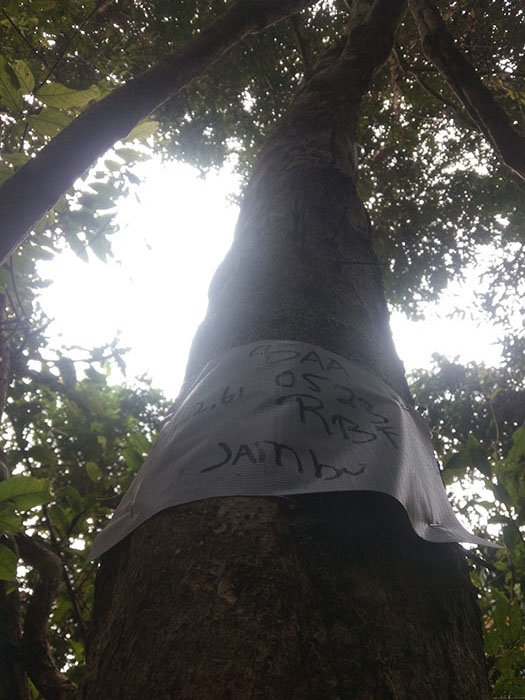 BAA
05233
2.61 RBE
JAMbu